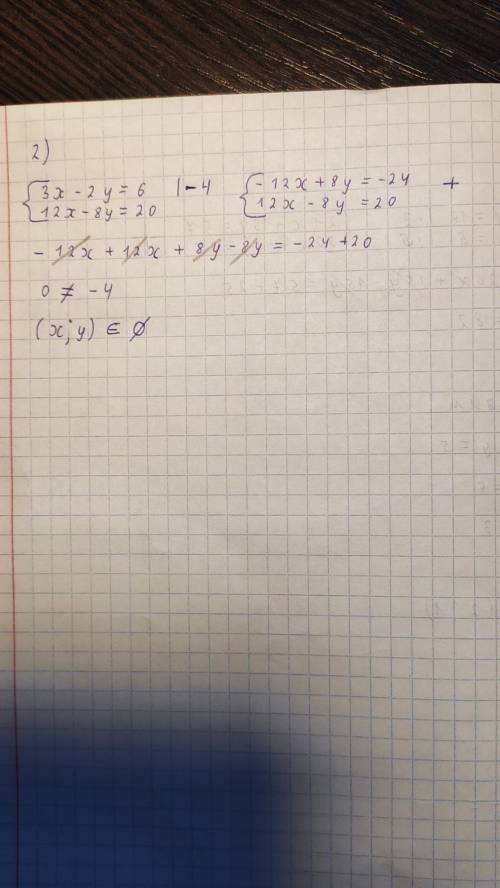 2)
{3x - 2y = 6 | -4 {-12x + 8y = -24 +
{12x - 8y = 20 {12x - 8y = 20
- 12x + 12x + 8y - 8y = -24 + 20
0 ≠ -4
(x; y) ∈ ∅